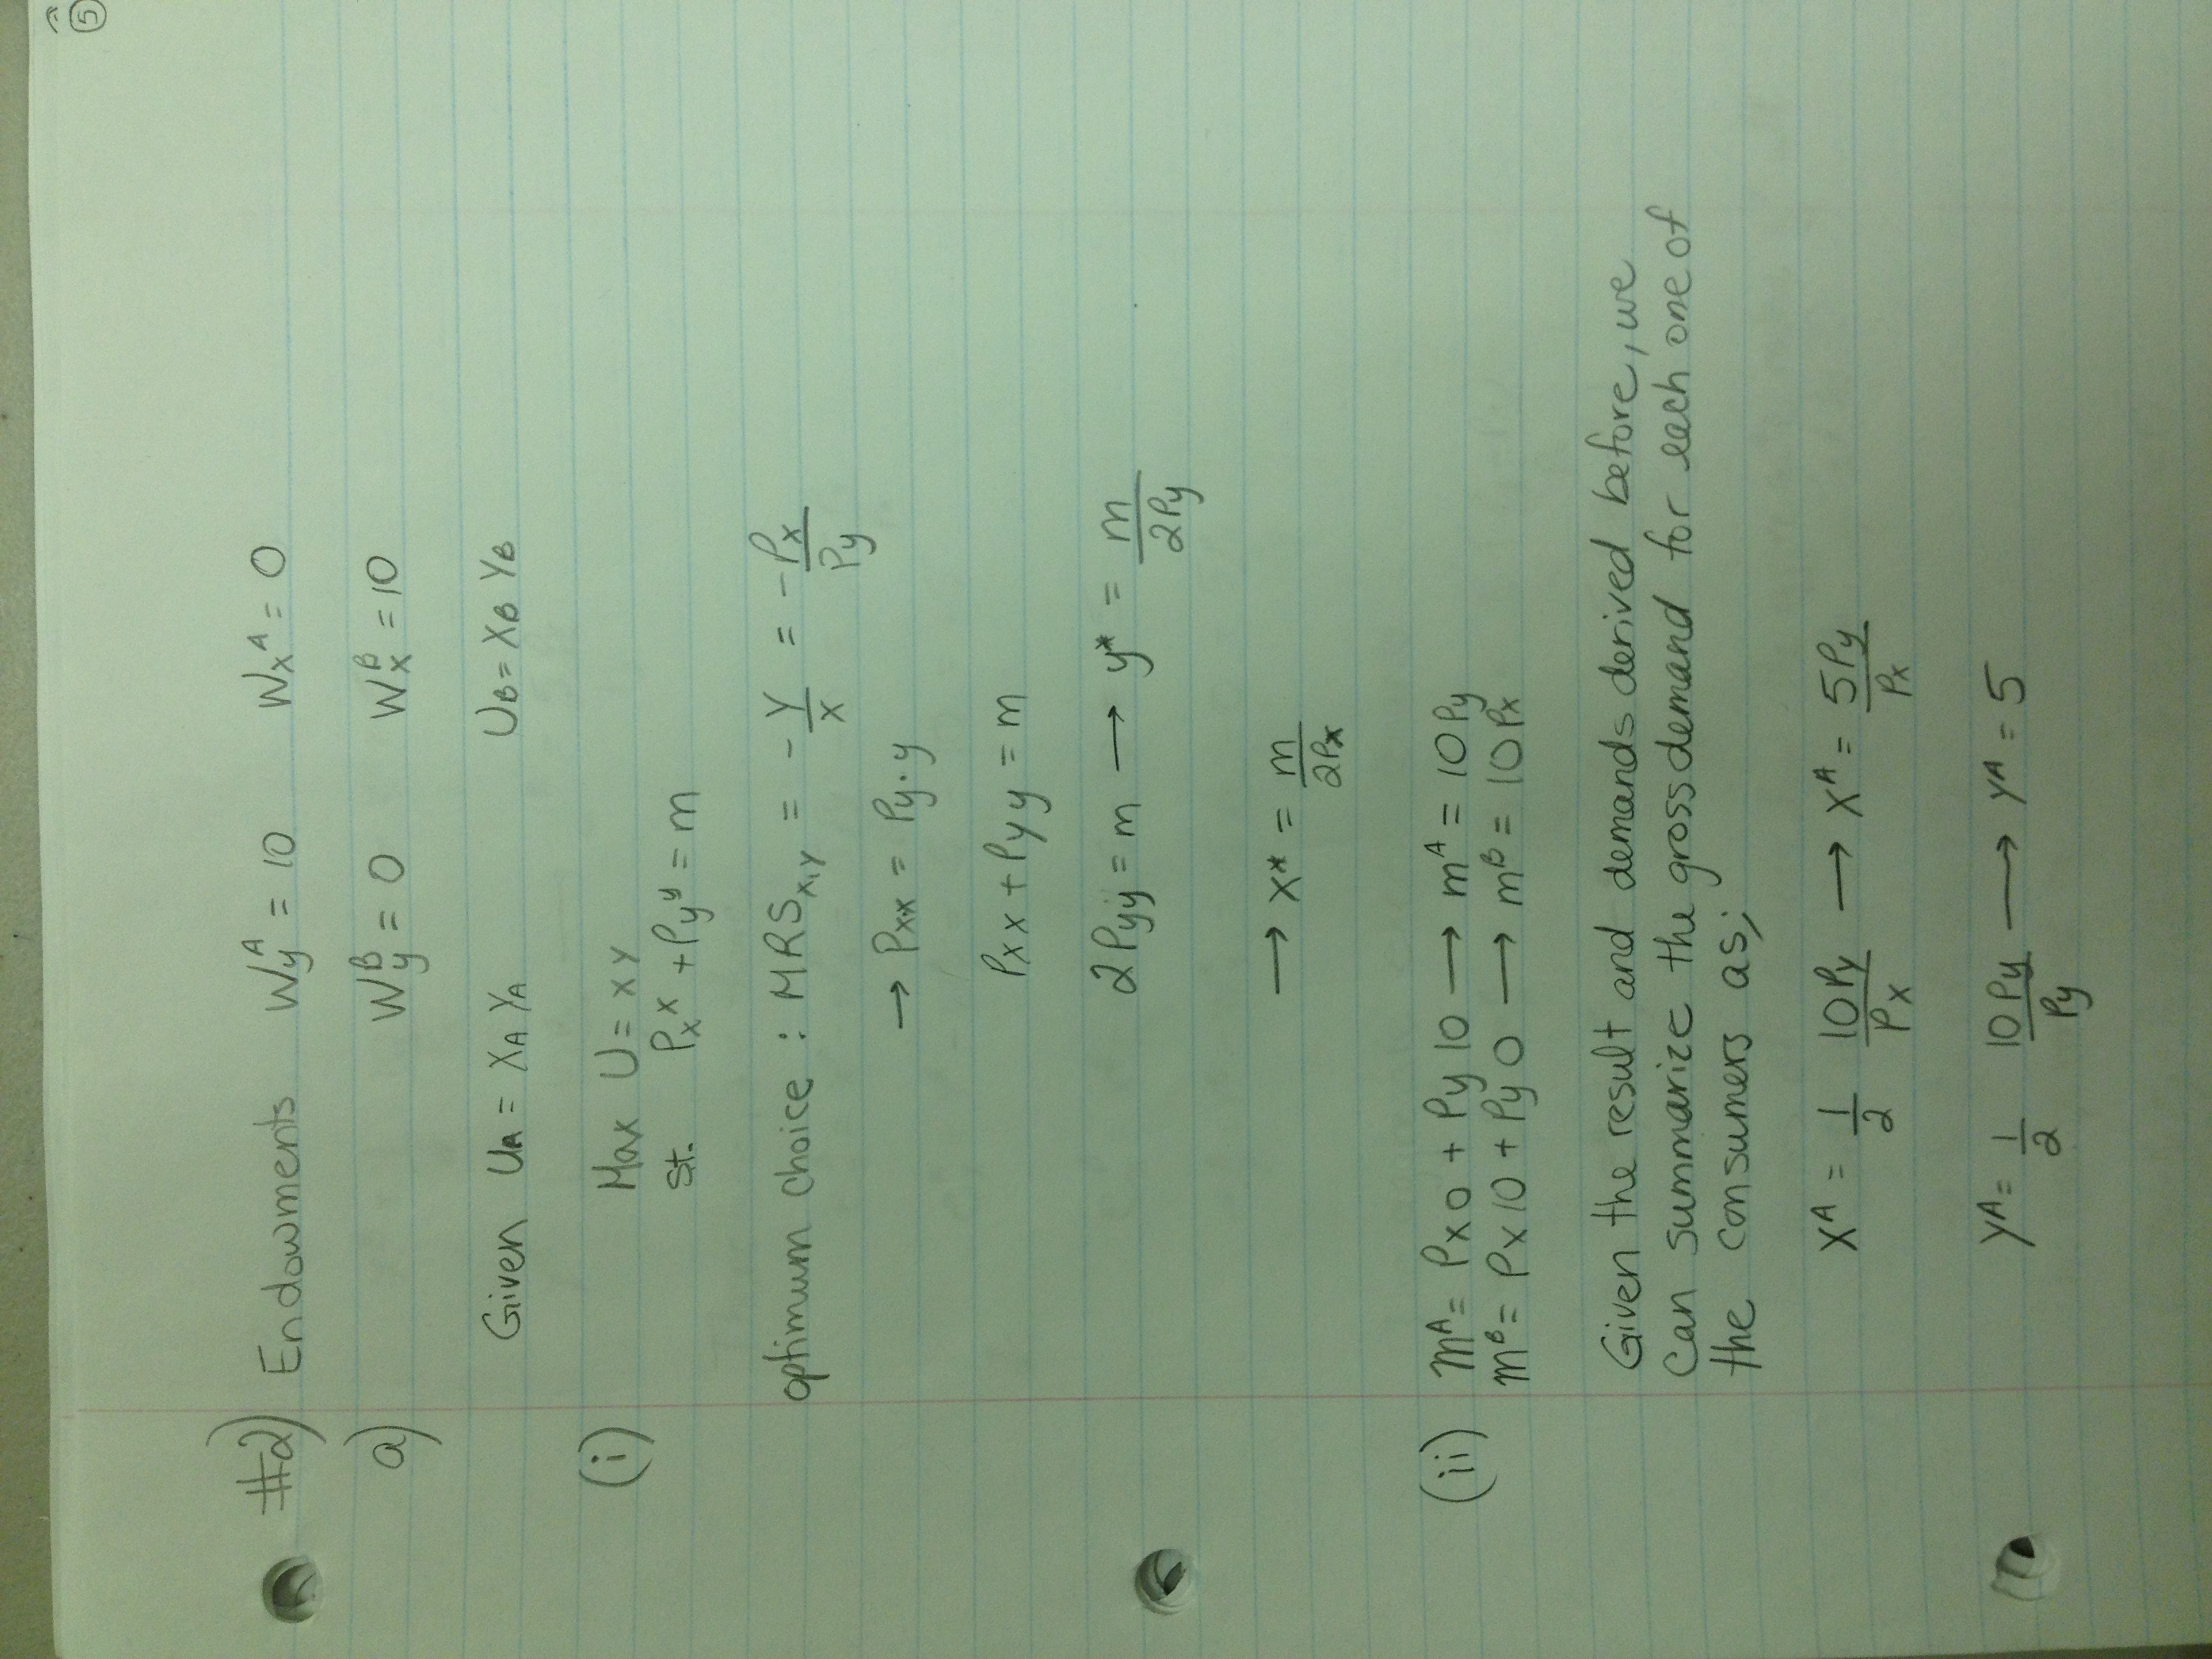 5
#2) Endowments W_y^A = 10 W_x^A = 0
a) W_y^B = 0 W_x^B = 10
Given U_A = X_A Y_A U_B = X_B Y_B
(i) Max U = XY
st. P_x X + P_y y = m
optimum choice : MRS_x,y = - Y/X = - P_x/P_y
→ P_x x = P_y · y
P_x x + P_y y = m
2 P_y y = m → y* = m/2P_y
→ x* = m/2P_x
(ii) m^A = P_x 0 + P_y 10 → m^A = 10 P_y
m^B = P_x 10 + P_y 0 → m^B = 10 P_x
Given the result and demands derived before, we
can summarize the gross demand for each one of
the consumers as;
X^A = 1/2 10P_y/P_x → X^A = 5P_y/P_x
Y^A = 1/2 10P_y/P_y → Y^A = 5